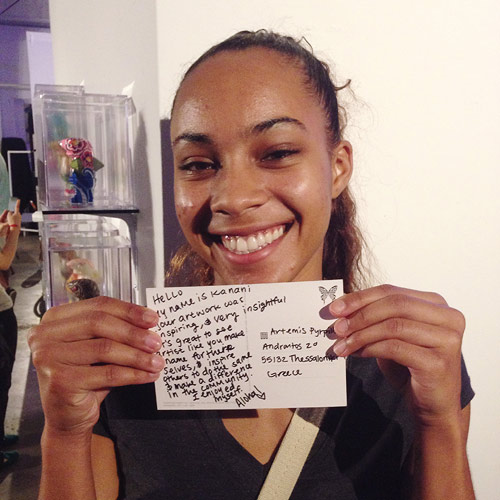 Hello
My name is Kanani
Your artwork was
inspiring & very insightful
It's great to see
artist like you make
name for them
selves, & inspire
others to do the same
& make a difference
in the community.
I enjoyed
myself.
Aloha!
Artemis
Andrato 20
55132
Greece